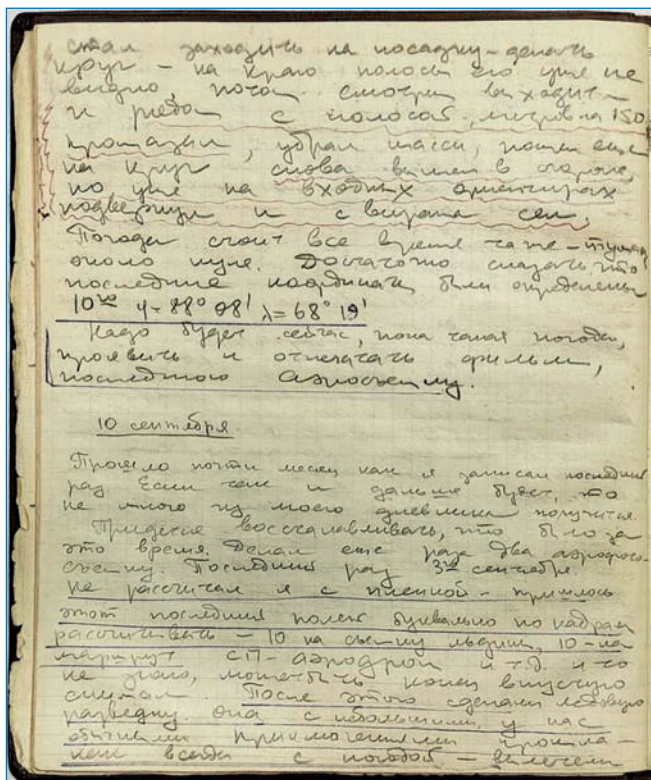 стал заходить на посадку – делать
круг – на краю полосы его уже не
видно, потом смотрим выходит
и рядом с полосой, метров на 150
промазал, убрал шасси, пошел еще
на круг снова вышел в стороне,
но уже на входных ориентирах
подвернул и с виража сел.
Погода стоит все время та же – туман
около нуля. Достаточно сказать, что
последние координаты были определены
10го φ = 88° 08' λ = 68° 19'
Надо будет сейчас, пока такая погода,
проявить и отпечатать фильм,
последнюю аэросъемку.
10 сентября
Прошло почти месяц как я записал последний
раз. Если так и дальше будет, то
не много из моего дневника получится.
Придется восстанавливать, что было за
это время. Делал еще раза два аэрофото-
съемку. Последний раз 3го сентября.
Не рассчитал я с пленкой – пришлось
этот последний полет буквально по кадрам
рассчитывать – 10 на съемку льдины, 10 – на
маршрут СП – аэродром и т.д. и то
не знаю, может быть конец впустую
снимал. После этого сделали ледовую
разведку. Она с небольшими, у нас
обычными приключениями прошла –
как всегда с погодой – вылетели